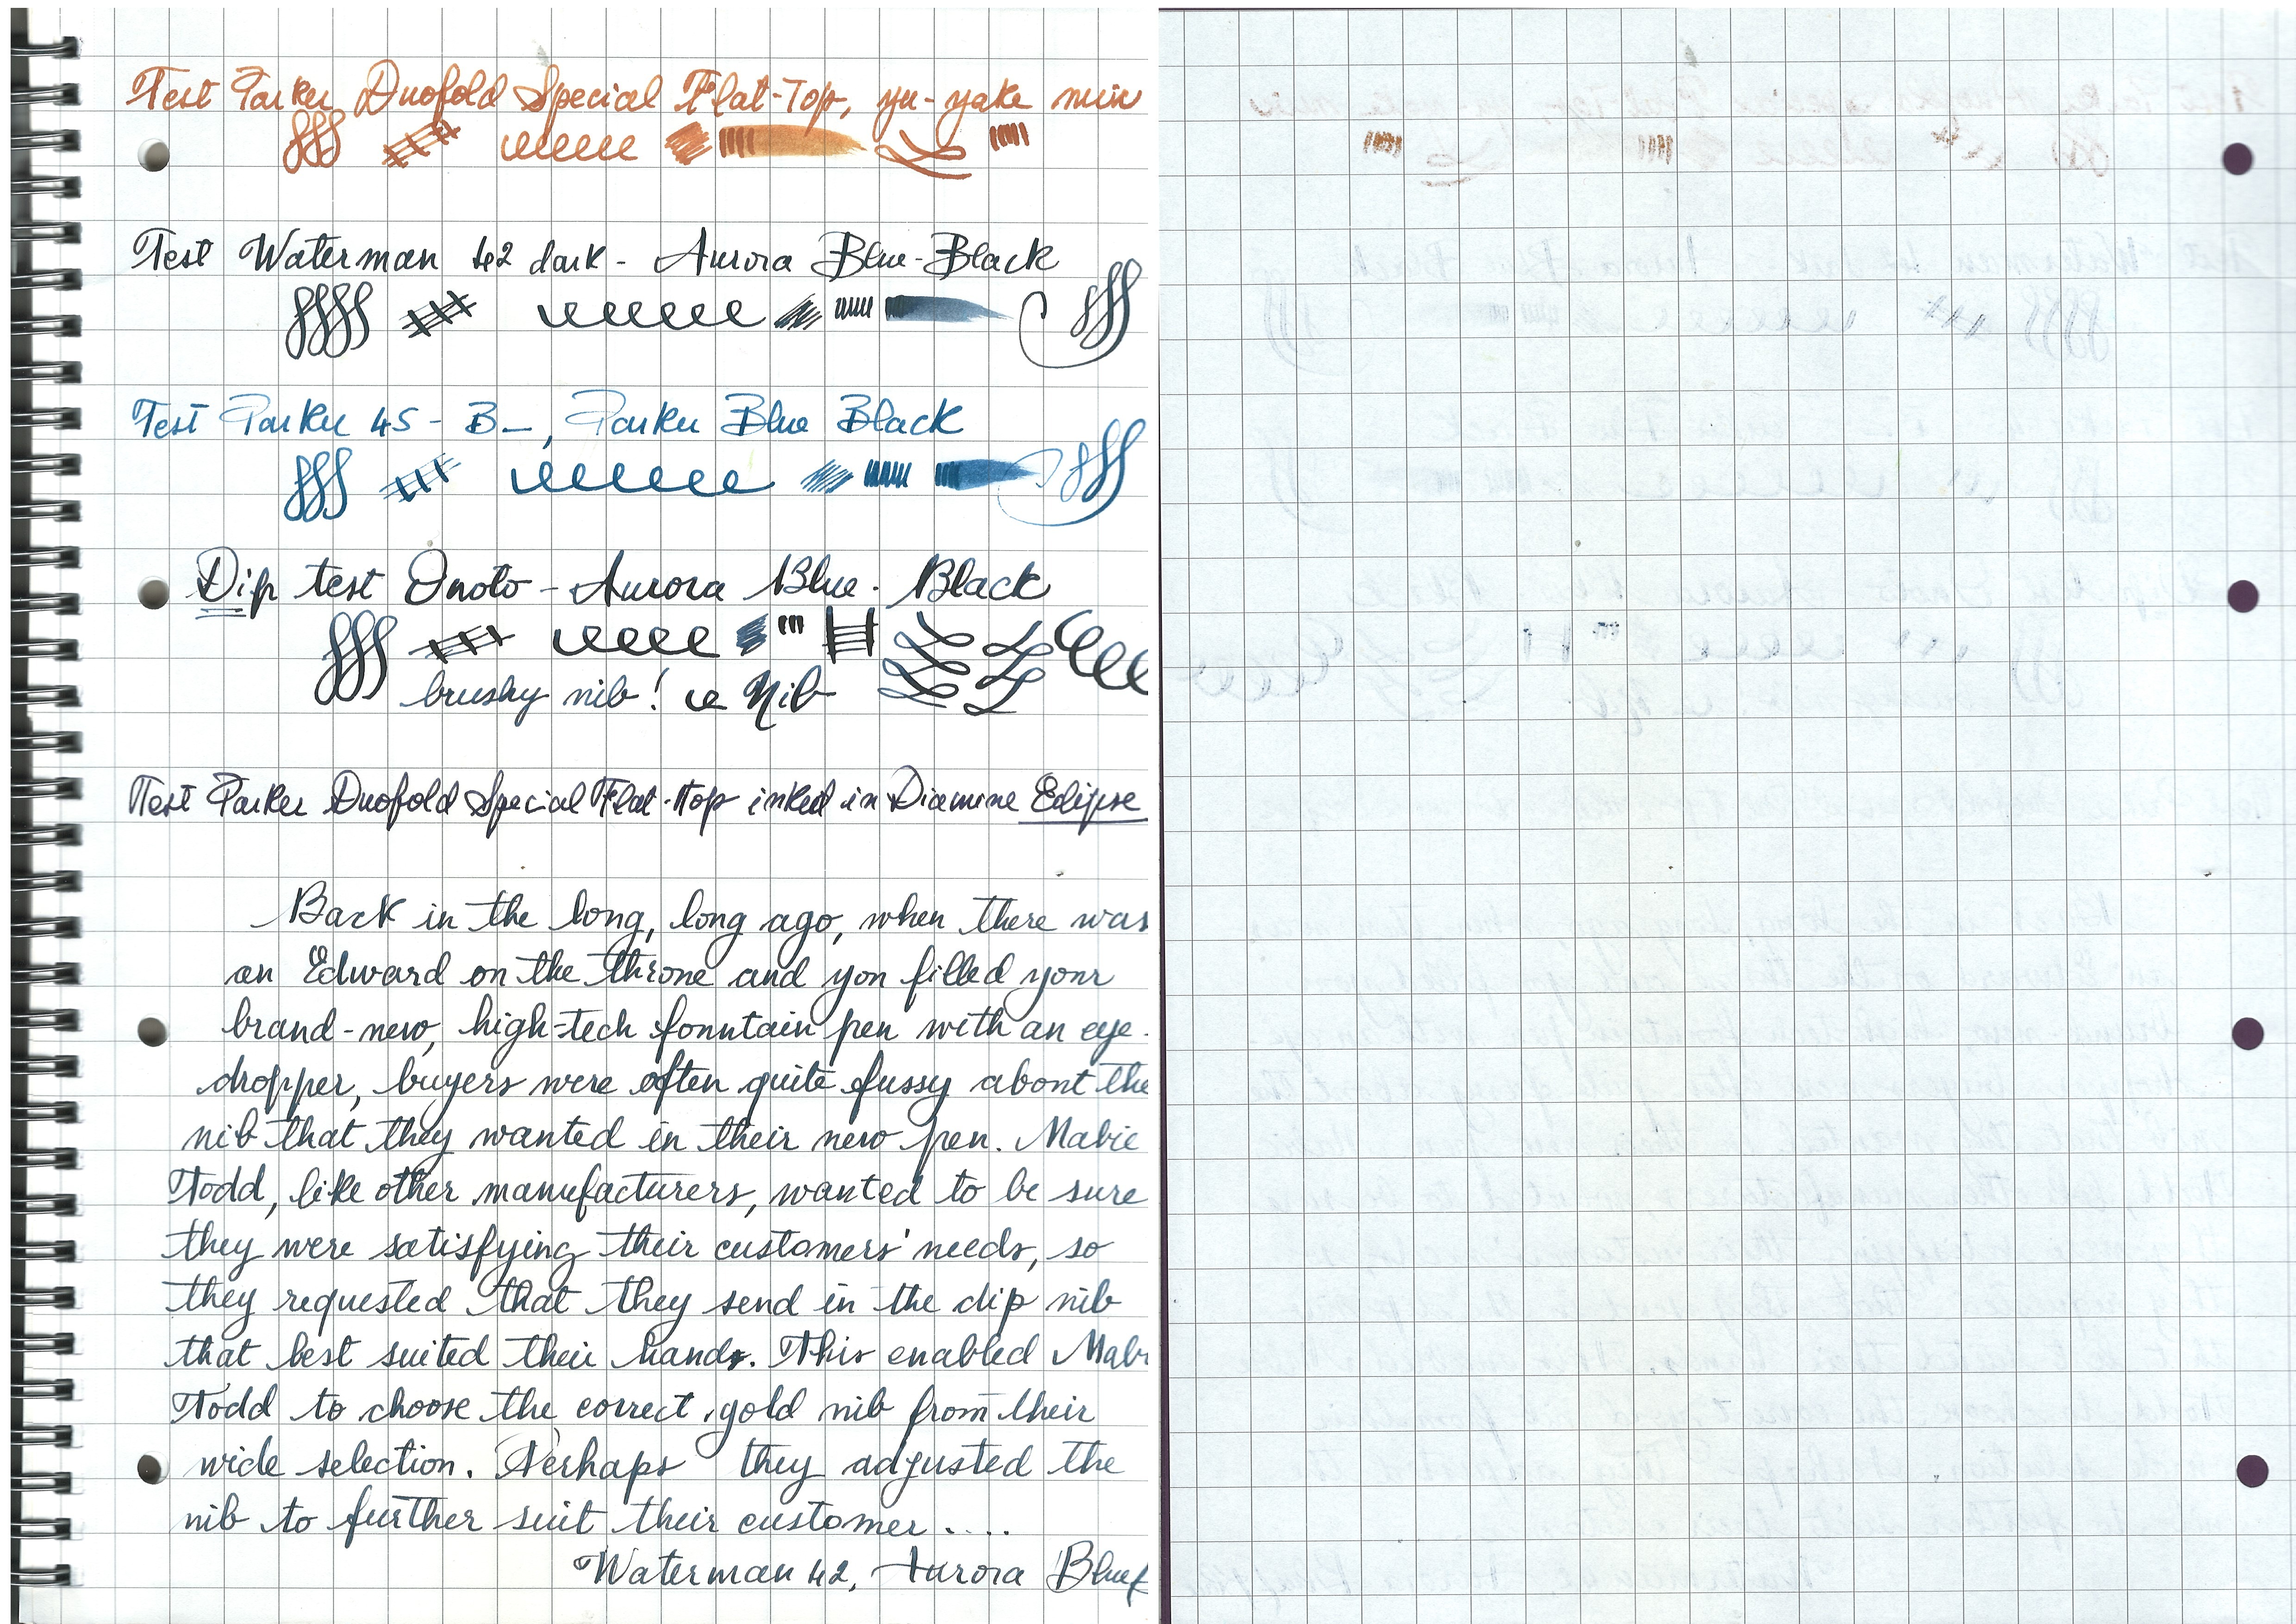 Test Parker Duofold Special Flat-Top, yu-yake
Test Waterman 42 dark - Aurora Blue-Black
Test Parker 45 - B-, Parker Blue Black
Dip test Onoto - Aurora Blue. Black
brushy nib! Nib
Test Parker Duofold Special Flat-Top inked in Diamine Eclipse
Back in the long, long ago, when there was
an Edward on the throne and you filled your
brand-new, high-tech fountain pen with an eye-
dropper, buyers were often quite fussy about the
nib that they wanted in their new pen. Mabie
Todd, like other manufacturers, wanted to be sure
they were satisfying their customers' needs, so
they requested that they send in the dip nib
that best suited their hands. This enabled Mabi
Todd to choose the correct gold nib from their
wide selection. Perhaps they adjusted the
nib to further suit their customer ....
Waterman 42, Aurora Blue